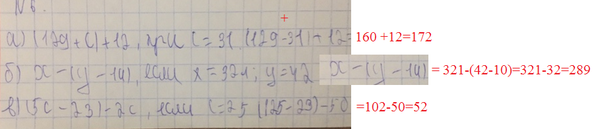 N 6.
а) (129+c)+12, при c=31 (129-31)+12= 160 +12=172
+
б) x-(y-14), если x=321; y=42 x-(y-14) = 321-(42-10)=321-32=289
в) (5c-23)-2c, если c=25 (125-23)-50 =102-50=52